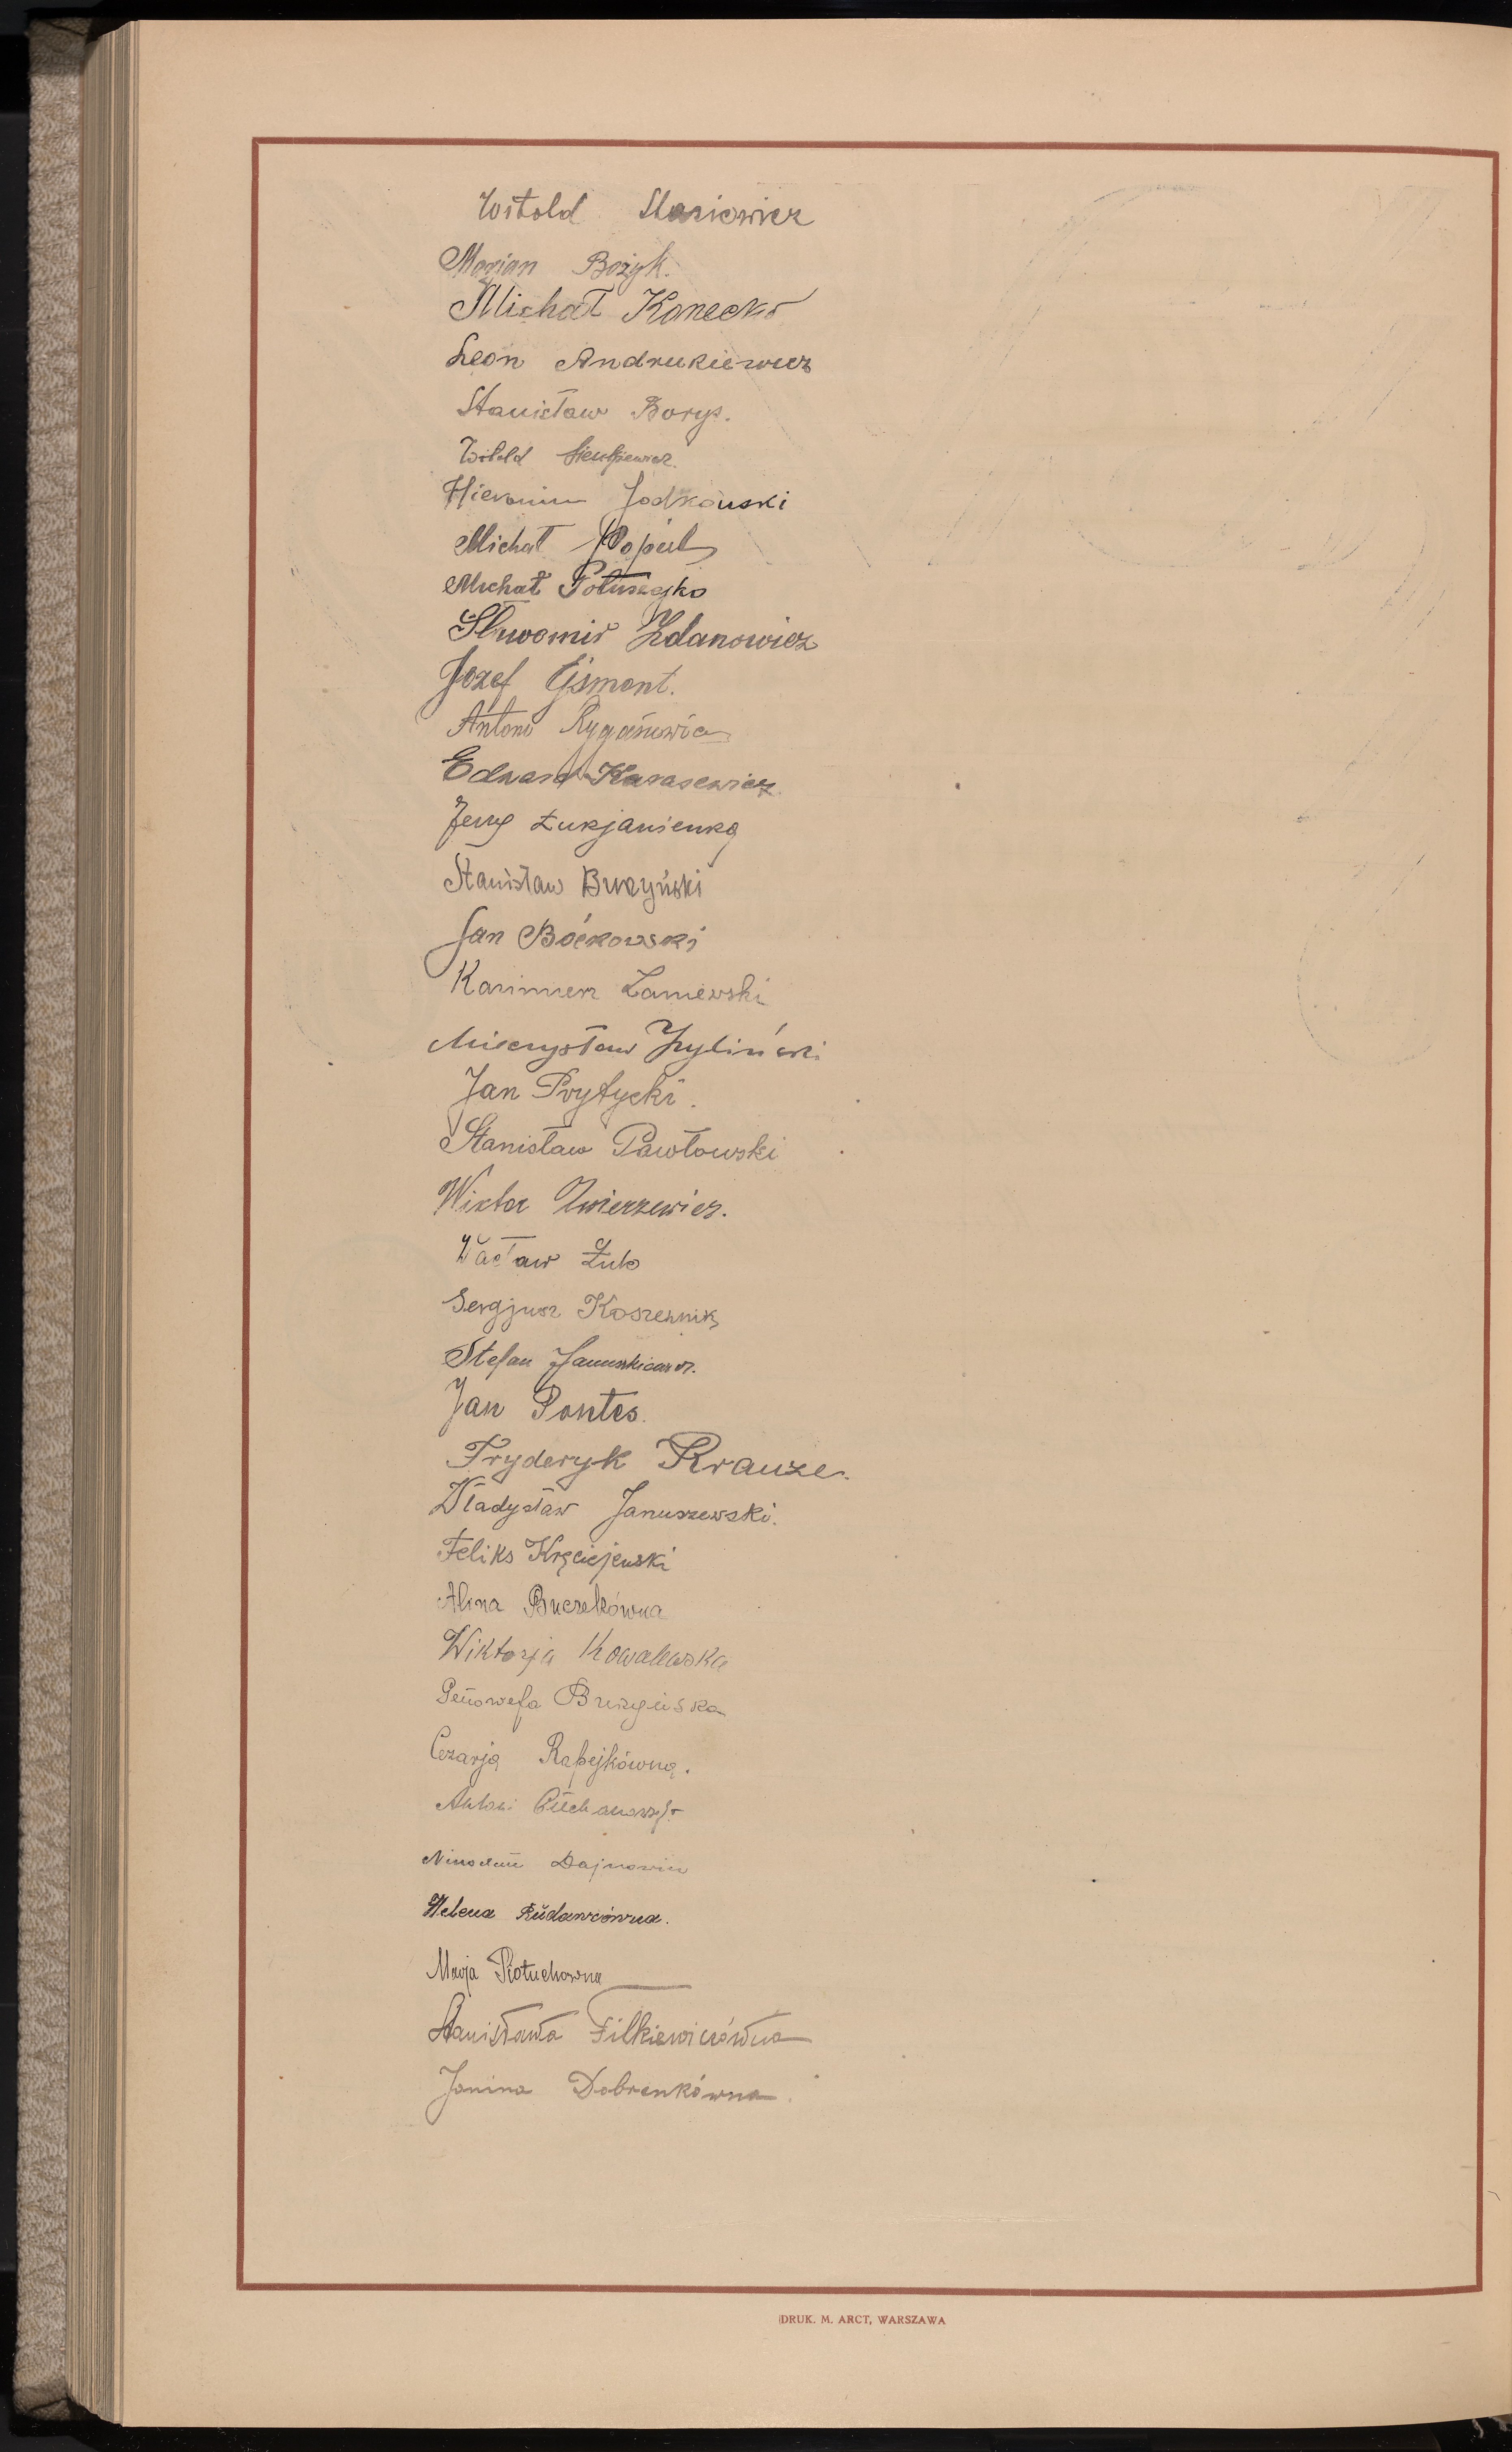 Witold Stasiewicz
Marjan Bożyk.
Michał Konecko
Leon Andrukiewicz
Stanisław Borys.
Witold Sienkiewicz.
Hieronim Jodkowski
Michał Popiel
Michał
Sławomir Zdanowicz
Józef Ejsmont.
Antoni
Edward Karasewicz.
Jerzy Łukjanienko
Stanisław Burzyński
Jan Boćkowski
Kazimierz Zaniewski
Mieczysław Żyliński
Jan Prytycki.
Stanisław Pawłowski
Wiktor Zwierzewicz.
Wacław Żuk
Sergjusz Koszewnik
Stefan Januszkiewicz.
Jan Pontes.
Fryderyk Krauze.
Władysław Januszewski.
Feliks Kręciejewski
Alina Buczekówna
Wiktorja Kowalewska
Genowefa Burzyńska
Cezarja Rapejkówna.
Antoni
Dajnowicz
Helena Rudawcówna.
Marja Piotuchowna
Stanisława Filkiewiczówna
Janina Dobrenkówna.
DRUK. M. ARCT, WARSZAWA